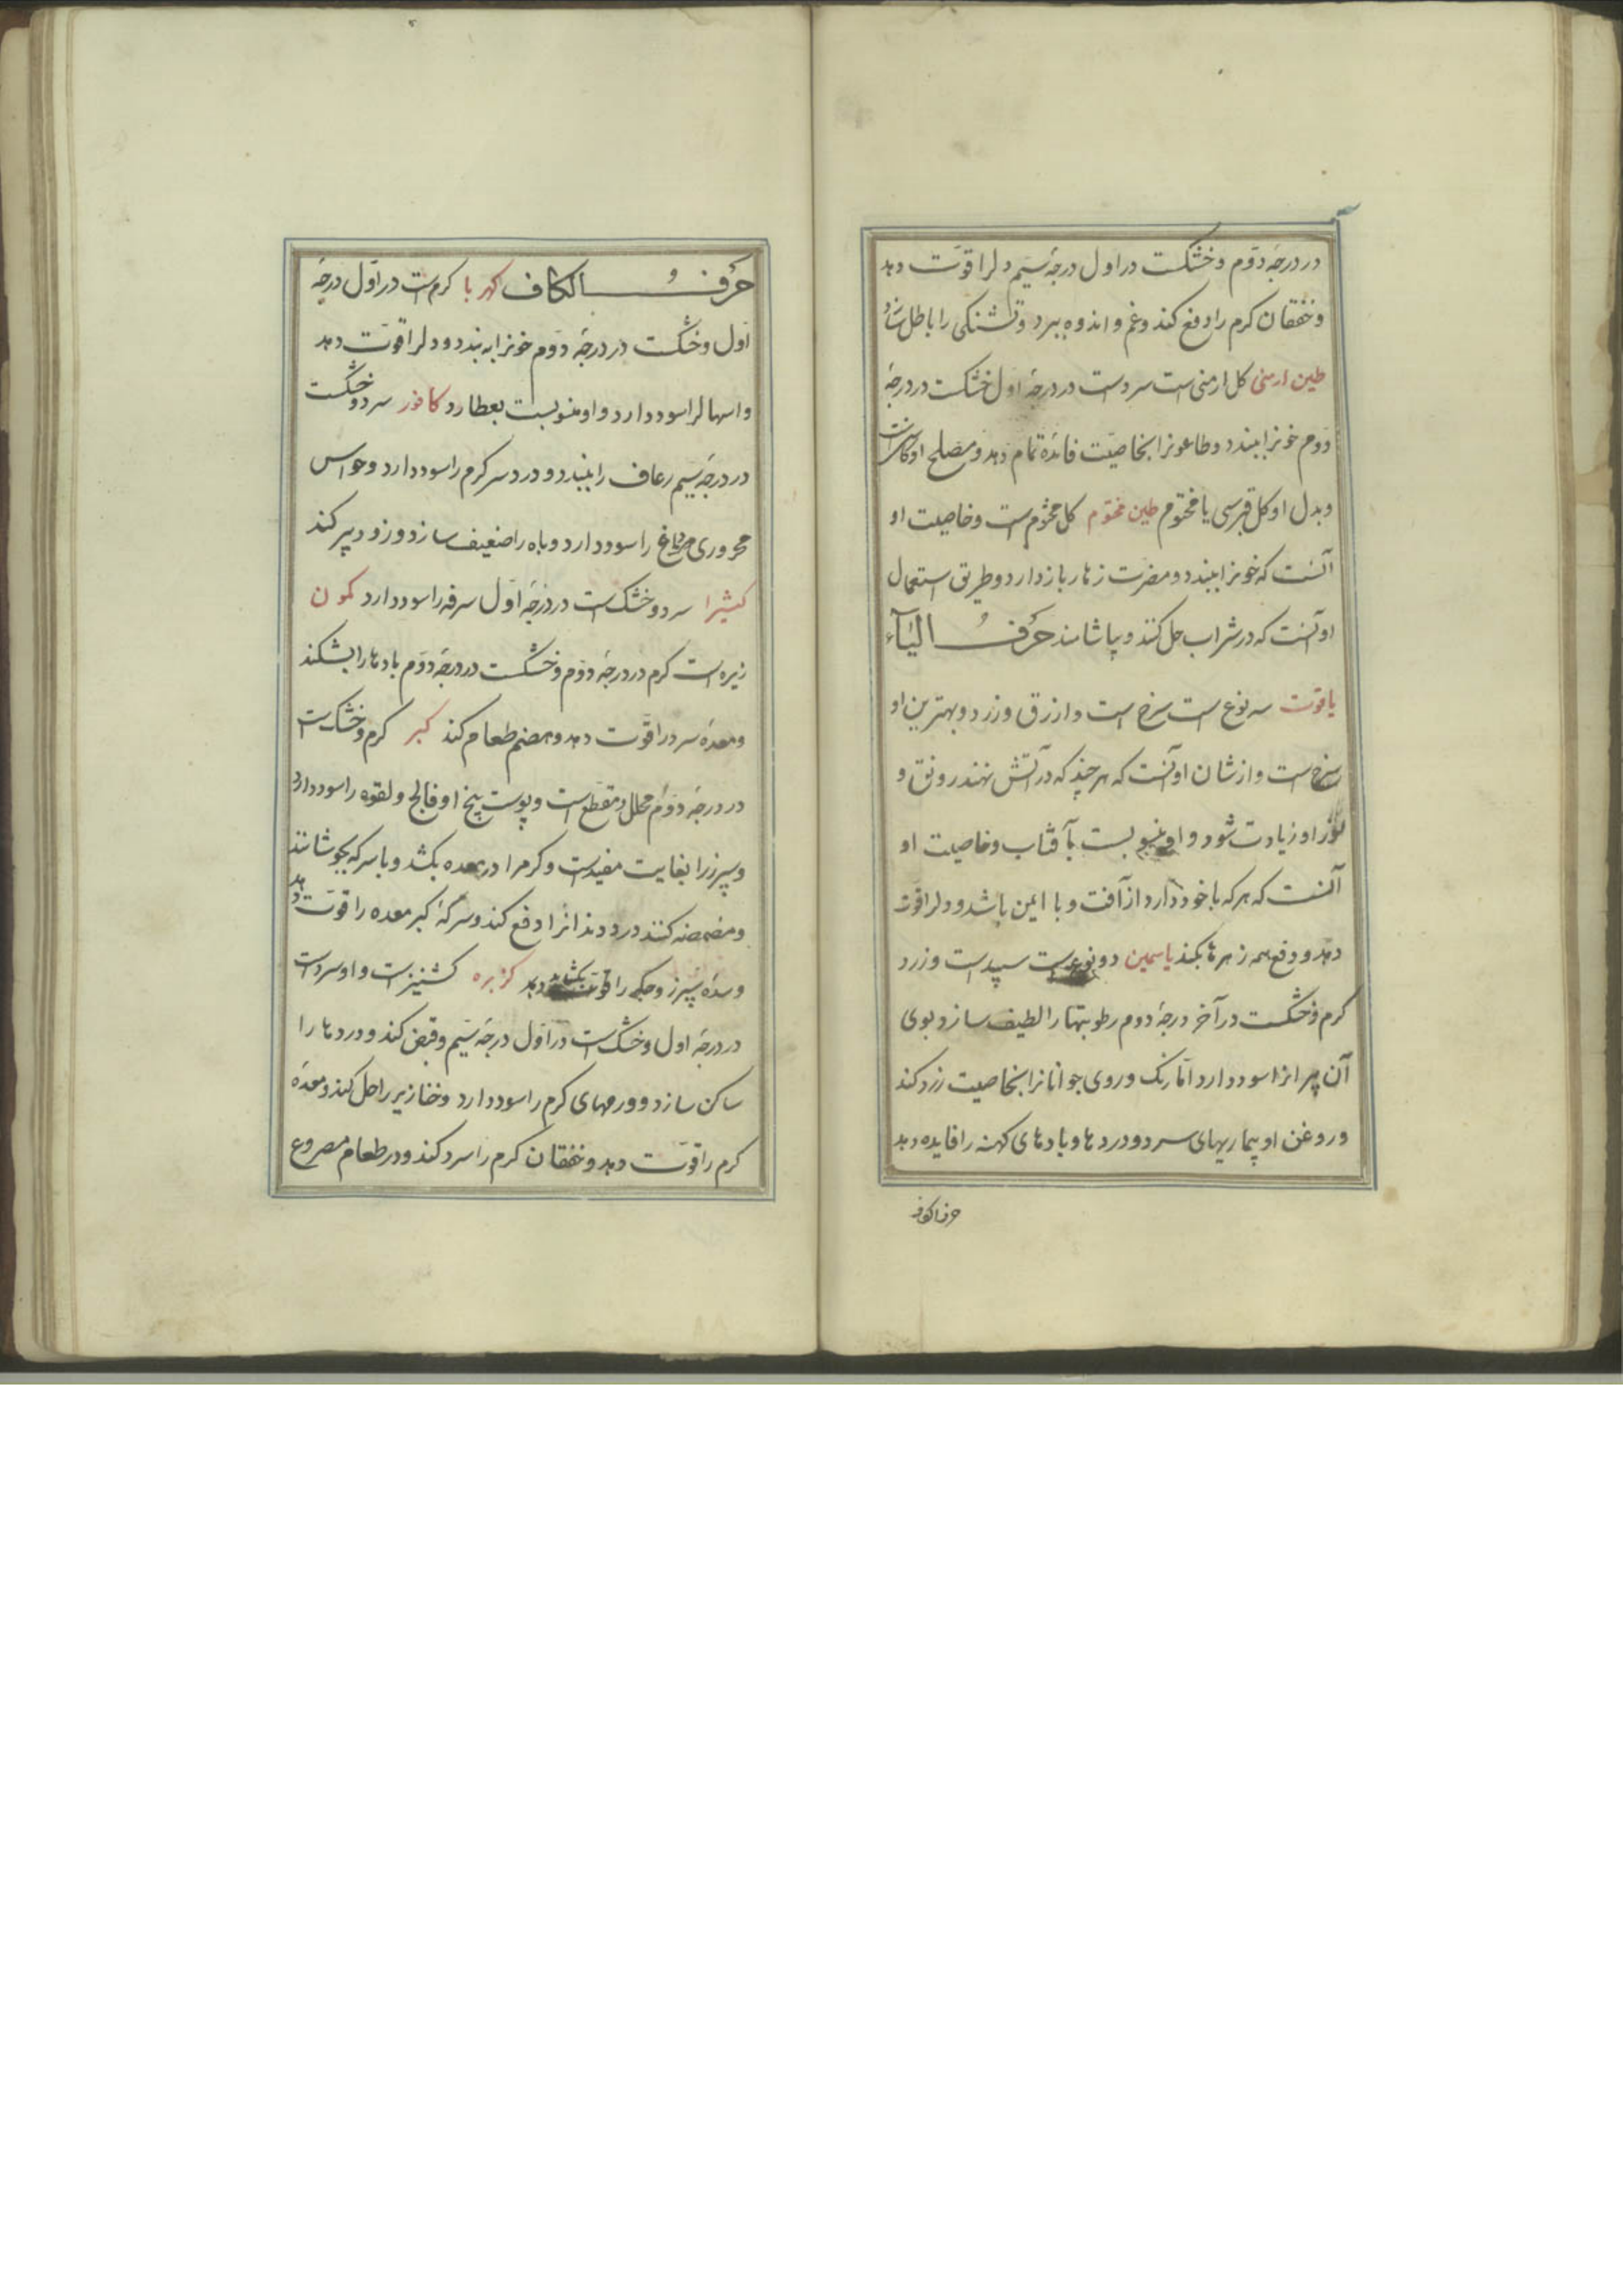 در درجهٔ دوّم و خشکست در اول درجهٔ سیّم دلرا قوّت دهد
و خفقان کرم را دفع کند و غم و اندوه ببرد و تشنکی را باطل سازد
طین ارمنی کل ارمنی است سردست در درجهٔ اول خشکست در درجهٔ
دوم خونرا ببندد و طاعونرا بخاصیّت فائدهٔ تمام دهد و مصلح او
و بدل او کل قبرسی یا مختوم طین مختوم کل مختوم است و خاصیت او
آنست که خونرا ببندد و مضرت زهار بازدارد و طریق استعمال
او آنست که در شراب حل کنند و بیاشامند حَرفُ الیَآء
یاقوت سه نوع است سرخ است و ازرق و زرد و بهترین او
سرخ است و از شان او آنست که هر چند که در آتش نهند رونق و
نور او زیادت شود و او منسوبست بآفتاب و خاصیت او
آنست که هرکه با خود دارد از آفت وبا ایمن باشد و دلرا قوّت
دهد و دفع همه زهرها بکند یاسمین دو نوعست سپیدست و زرد
کرم و خشکست در آخر درجهٔ دوم رطوبتها را لطیف سازد و بوی
آن پیرانرا سود دارد امّا رنک و روی جوانانرا بخاصیت زرد کند
و روغن او بیماریهای سرد و دردها و بادهای کهنه را فایده دهد
حرف الکاف
حَرفُ الکاف کهربا کرم است در اوّل درجهٔ
اوّل و خشکست در درجهٔ دوّم خونرا به بندد و دلرا قوّت دهد
و اسهالرا سود دارد و او منسوبست بعطارد کافور سرد و خشکست
در درجهٔ سیّم رعاف را ببندد و درد سر کرم را سود دارد و حواس
محروری دماغ را سود دارد و باه را ضعیف سازد و زود پیر کند
کثیرا سرد و خشک است در درجهٔ اوّل سرفه را سود دارد کمون
زیره است کرم در درجهٔ دوّم و خشکست در درجهٔ دوّم بادها را بشکند
و معدهٔ سرد را قوّت دهد و هضم طعام کند کبر کرم و خشک است
در درجهٔ دوّم محلل و مقطع است و پوست بیخ او فالج و لقوه را سود دارد
و سپرز را بغایت مفیدست و کرم را در معده بکشد و با سرکه بجوشانند
و مضمضه کنند درد دندانرا دفع کند و سرکهٔ کبر معده را قوّت دهد
و سدّهٔ سپرز و جکر را بکشاید کزبره کشنیزست و او سردست
در درجهٔ اول و خشک است در اوّل درجهٔ سیّم و قبض کند و دردها را
ساکن سازد و ورمهای کرم را سود دارد و خنازیر را حل کند و معدهٔ
کرم را قوّت دهد و خفقان کرم را سرد کند و در طعام مصروع